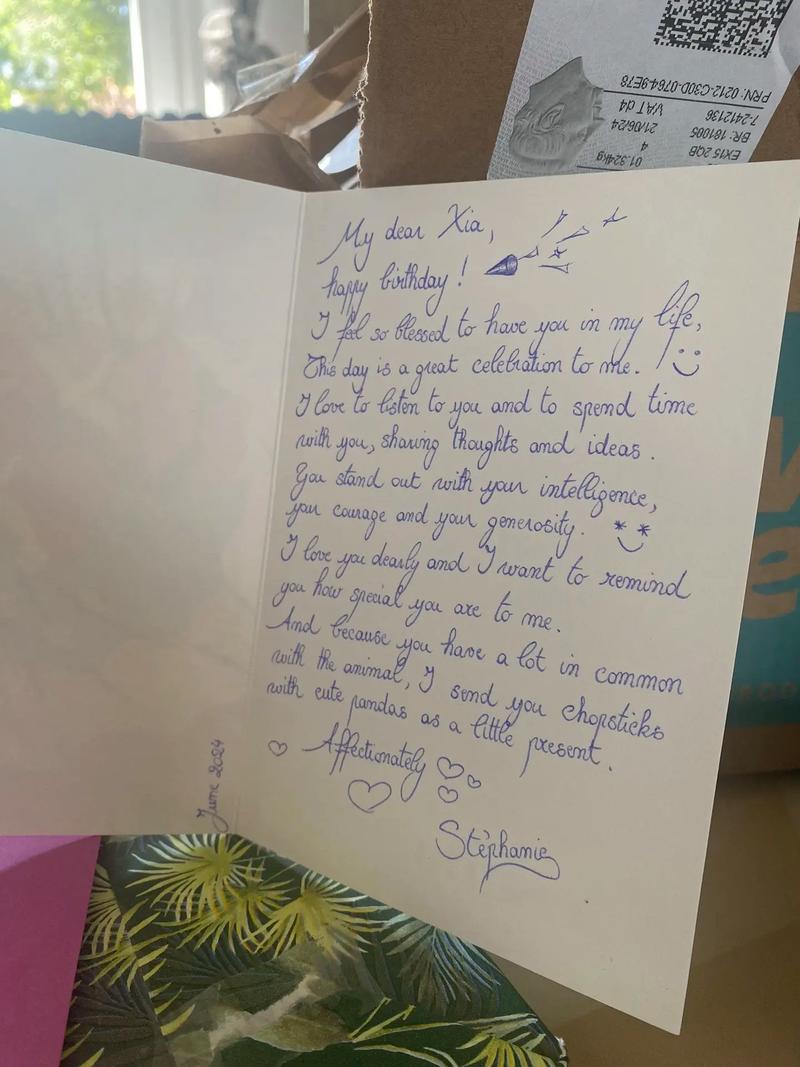 My dear Xia,
happy birthday !
I feel so blessed to have you in my life,
This day is a great celebration to me.
I love to listen to you and to spend time
with you, sharing thoughts and ideas.
You stand out with your intelligence,
your courage and your generosity.
I love you dearly and I want to remind
you how special you are to me.
And because you have a lot in common
with the animal, I send you chopsticks
with cute pandas as a little present.
Affectionately
Stéphanie
June 2024
PRN: 0212-C30D-0764-9E78
VAT d4
7-2412136
21/06/24
BR: 181005
4
EX15 2QB
01.324kg